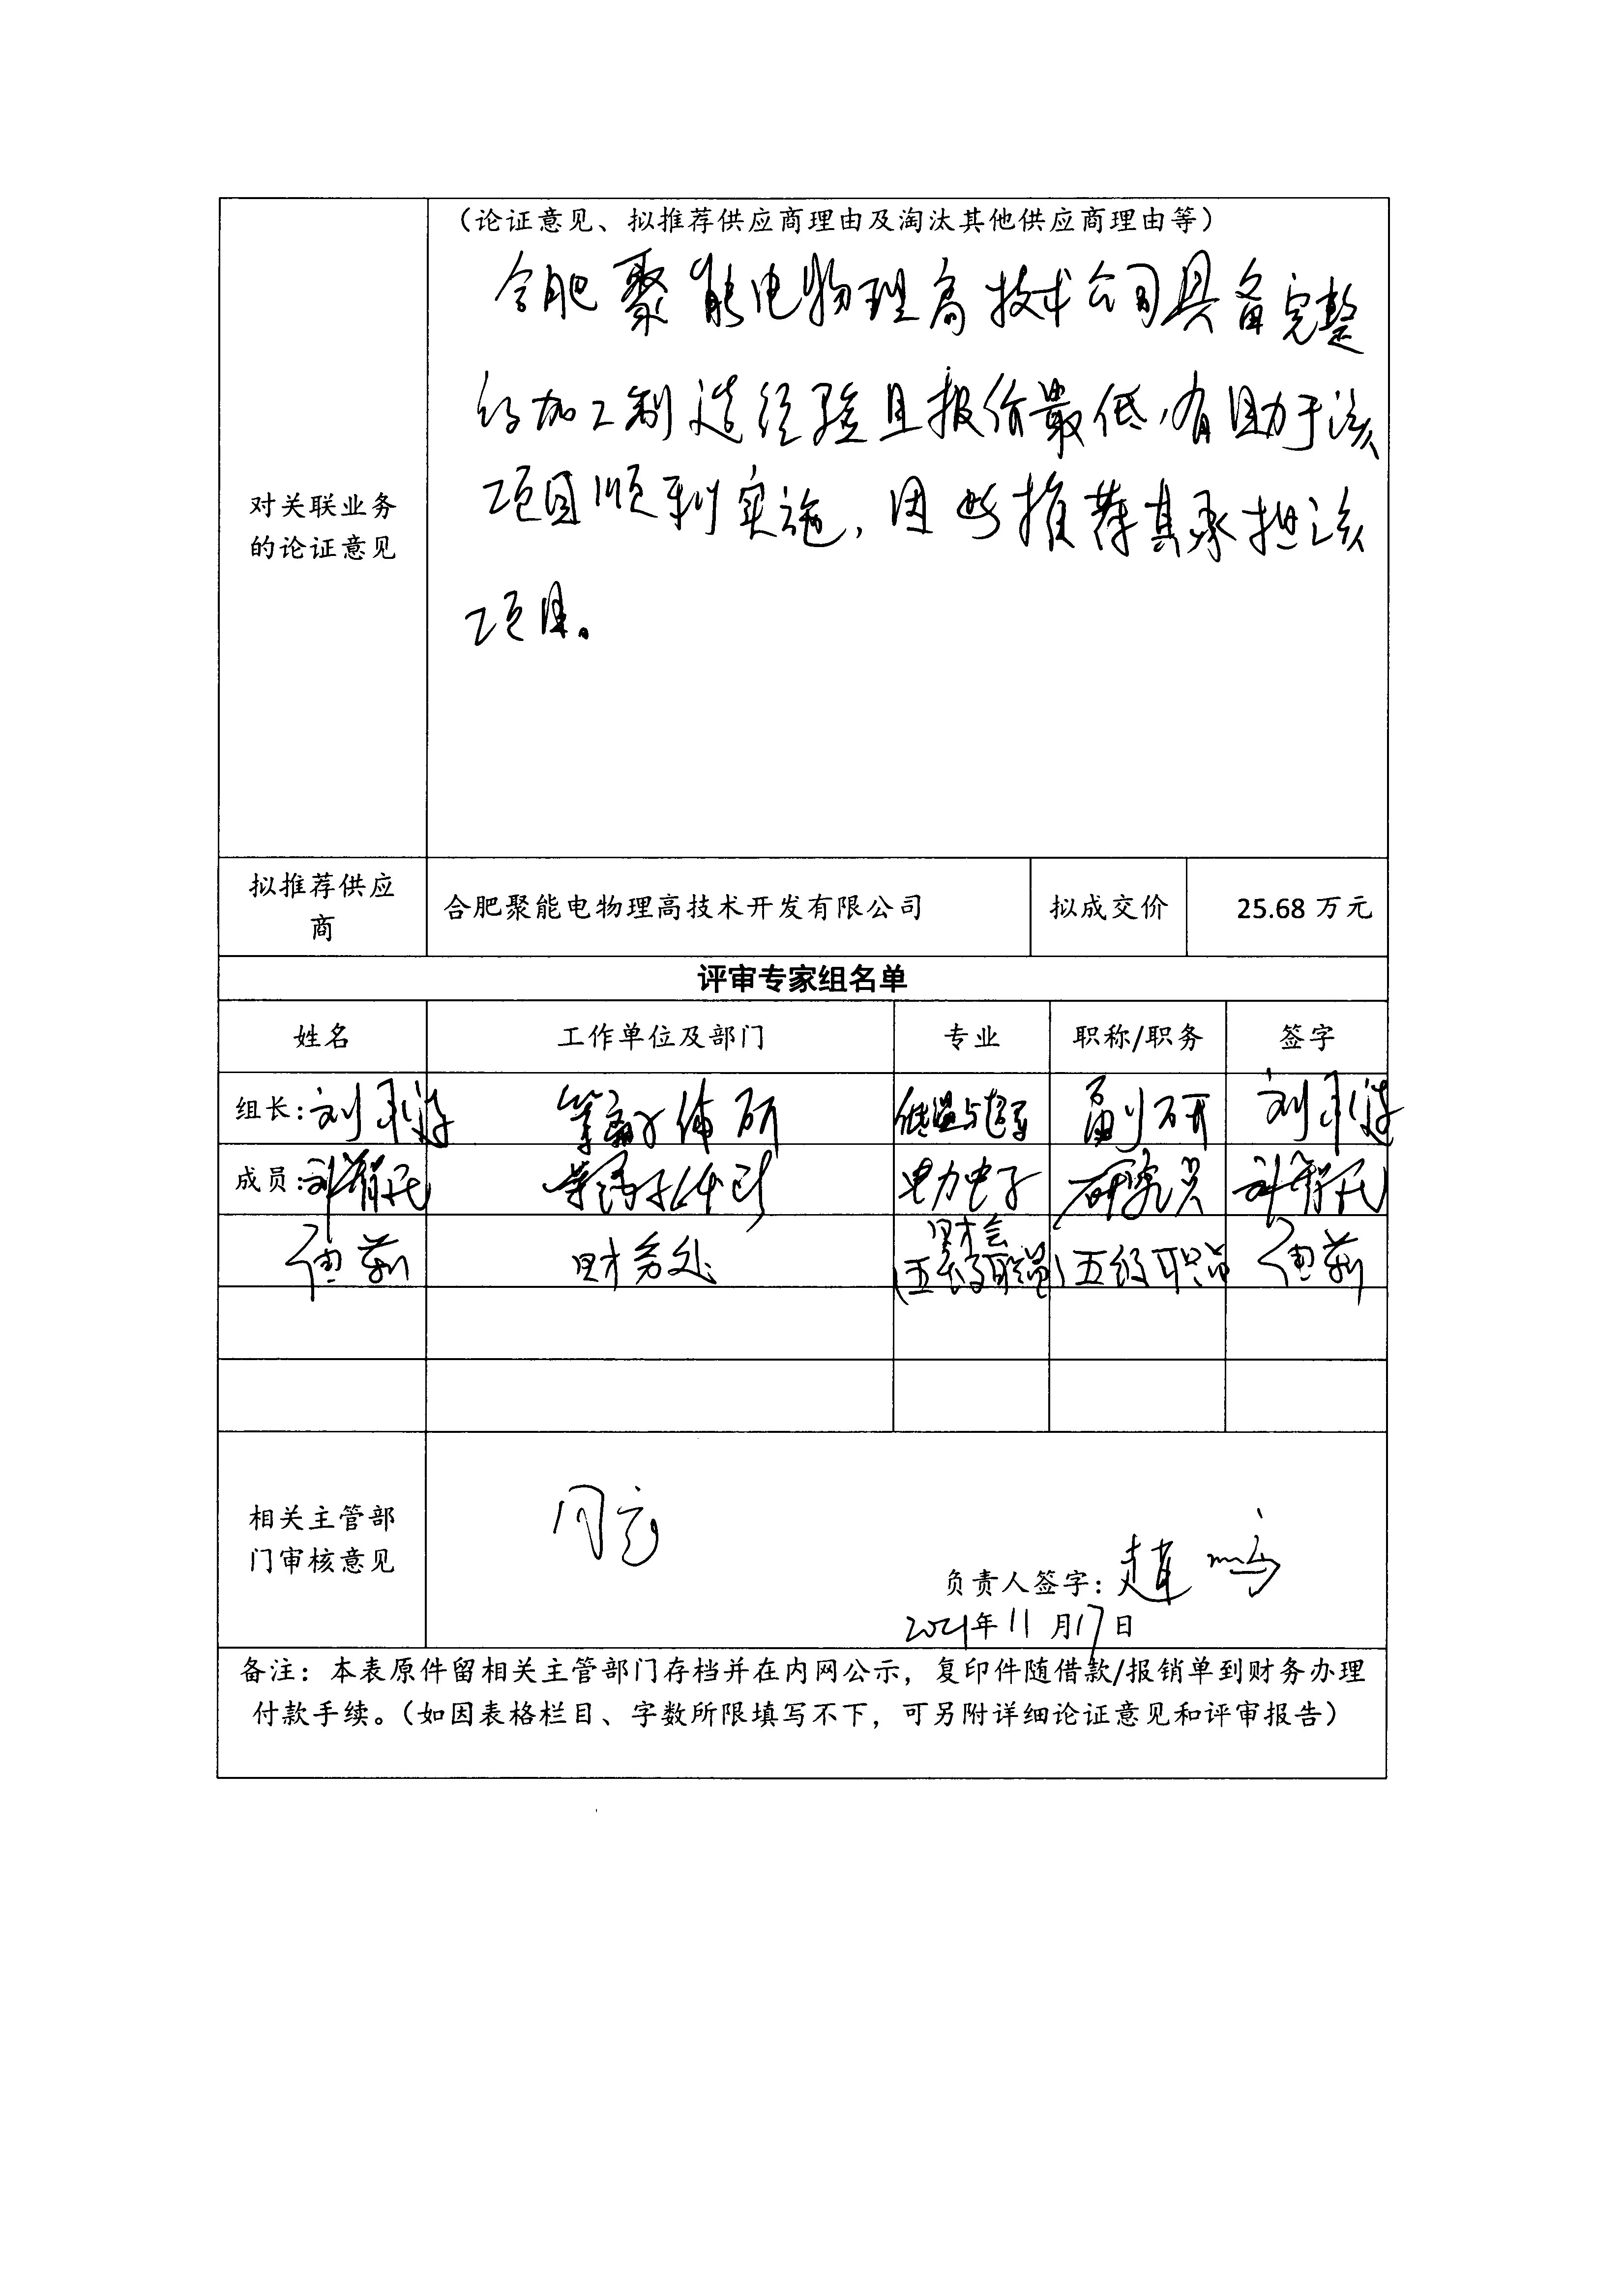 （论证意见、拟推荐供应商理由及淘汰其他供应商理由等）
合肥聚能电物理高技术公司具备完整
的加工制造经验且报价最低，有助于该
项目顺利实施，因此推荐其承担该
项目。
对关联业务
的论证意见
拟推荐供应
商
合肥聚能电物理高技术开发有限公司 拟成交价 25.68 万元
评审专家组名单
姓名 工作单位及部门 专业 职称/职务 签字
组长: 刘 等离子体所 低温与超导 副研 刘
成员: 等离子体所 电力电子 研究员
财务处 财会 (五级职员) 五级职员
相关主管部
门审核意见
同意
负责人签字: 赵
2021年11月17日
备注：本表原件留相关主管部门存档并在内网公示，复印件随借款/报销单到财务办理
付款手续。（如因表格栏目、字数所限填写不下，可另附详细论证意见和评审报告）